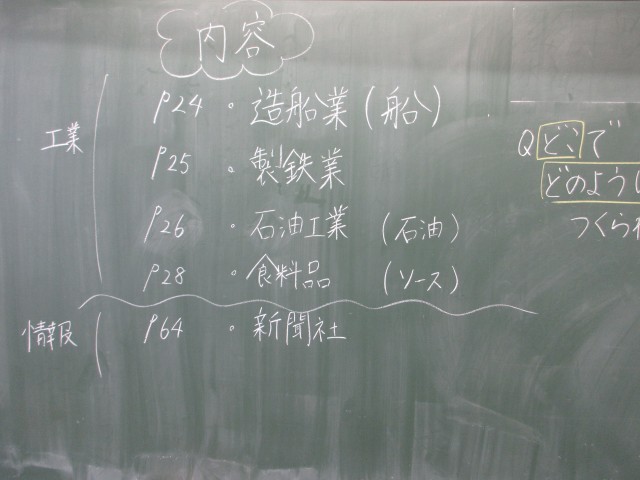 内容
工業
p24 ・造船業(船)
p25 ・製鉄業
p26 ・石油工業 (石油)
p28 ・食料品 (ソース)
情報
p64 ・新聞社
Q どこで
どのように
つくられ